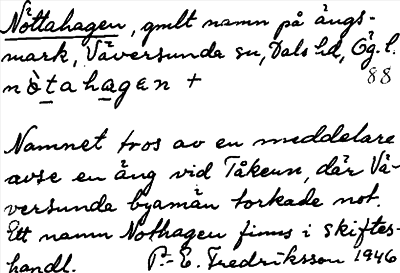 Nöttahagen, gmlt namn på ängs-
mark, Väversunda sn, Dals hd, Ög. l.
nò̀tahagen +
88
Namnet tros av en meddelare
avse en äng vid Tåkern, där Vä-
versunda byamän torkade not.
Ett namn Nothagen finns i skiftes-
handl.
P.-E. Fredriksson 1946